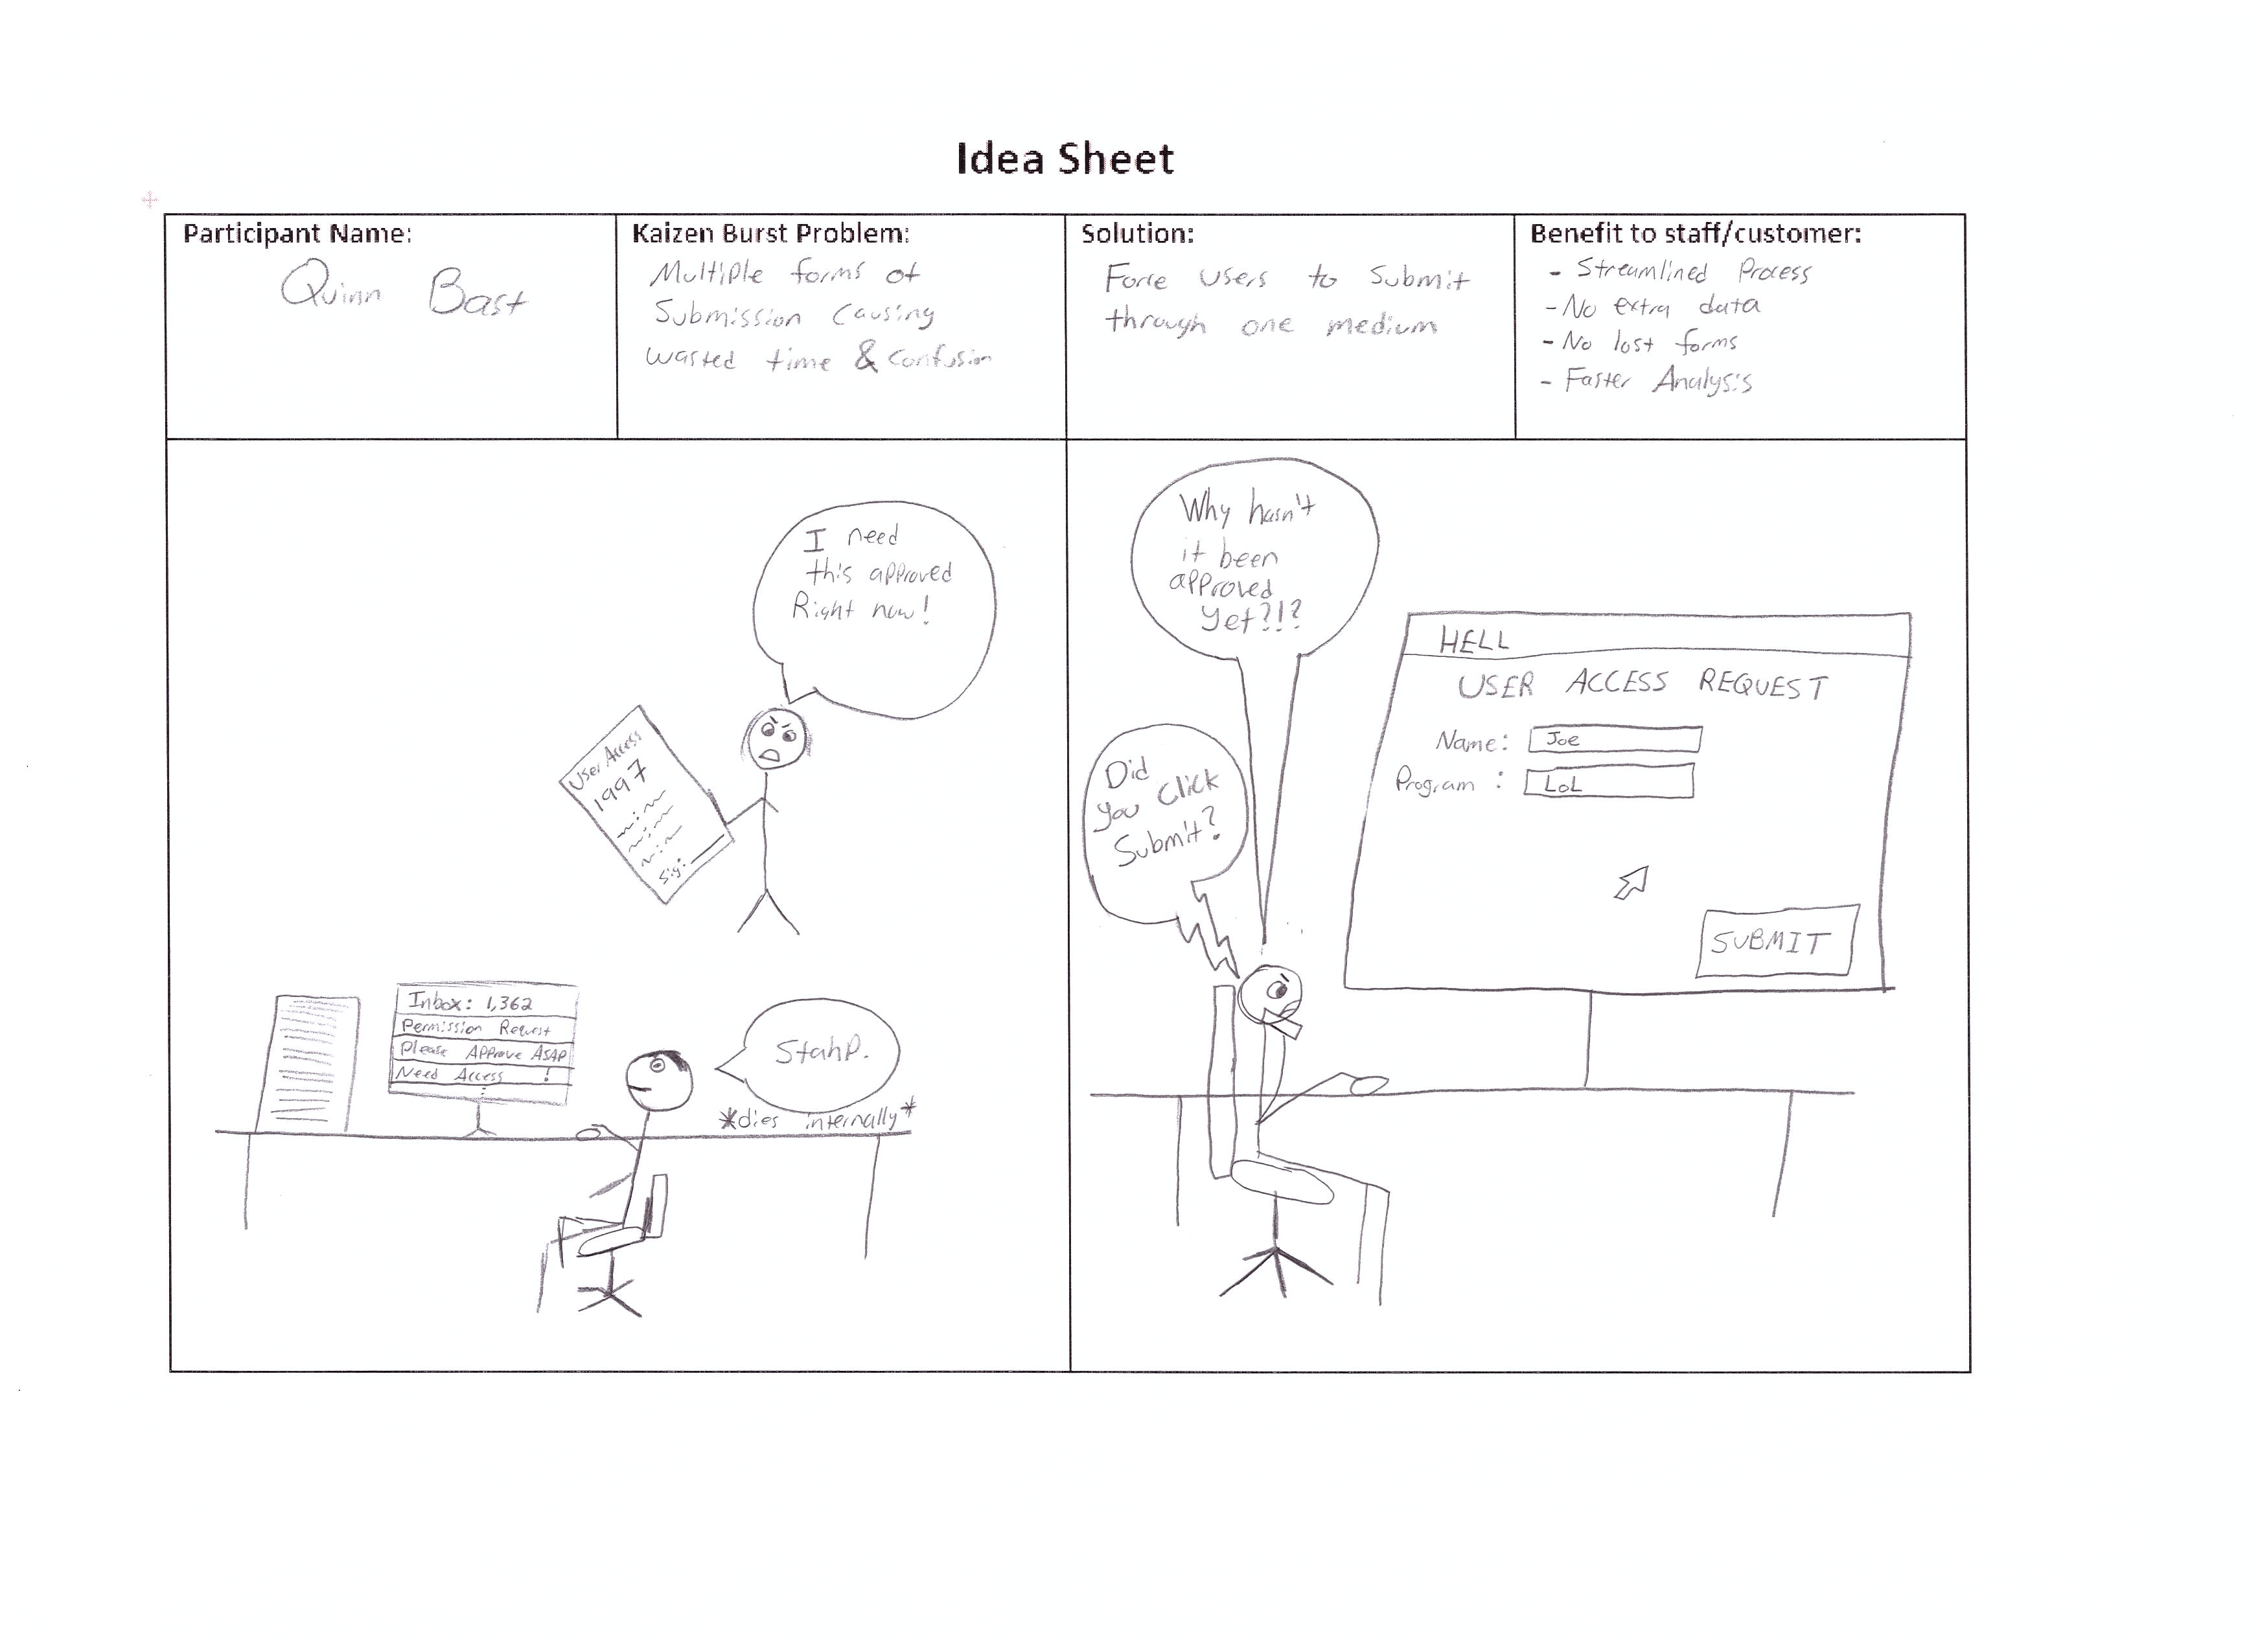 Idea Sheet
Participant Name:
Quinn Bast
Kaizen Burst Problem:
Multiple forms of
Submission causing
wasted time & confusion
Solution:
Force users to submit
through one medium
Benefit to staff/customer:
- Streamlined Process
- No extra data
- No lost forms
- Faster Analysis
I need
this approved
Right now!
User Access
1997
Sig:
Inbox: 1,362
Permission Request
Please Approve ASAP
Need Access !
Stahp.
*dies internally*
Why hasn't
it been
approved
yet?!?
Did
you click
Submit?
HELL
USER ACCESS REQUEST
Name: Joe
Program : LoL
SUBMIT